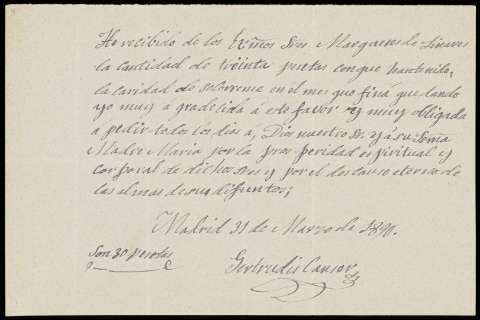 He recibido de los Exmos Sres Marqueses de Linares
la cantidad de treinta pesetas con que han tenido,
la caridad de socorrerme en el mes que finá que dando
yo muy a gradecida á este favor y muy obligada
a pedir todos los dias a, Dios nuestro Sr. y á su Sma
Madre Maria por la pros peridad espiritual y
corporal de dichos Sres y por el descanso eterno de
las almas de sus difuntos;
Madrid 31 de Marzo de 1890.
Son 30 pesetas
Gertrudis